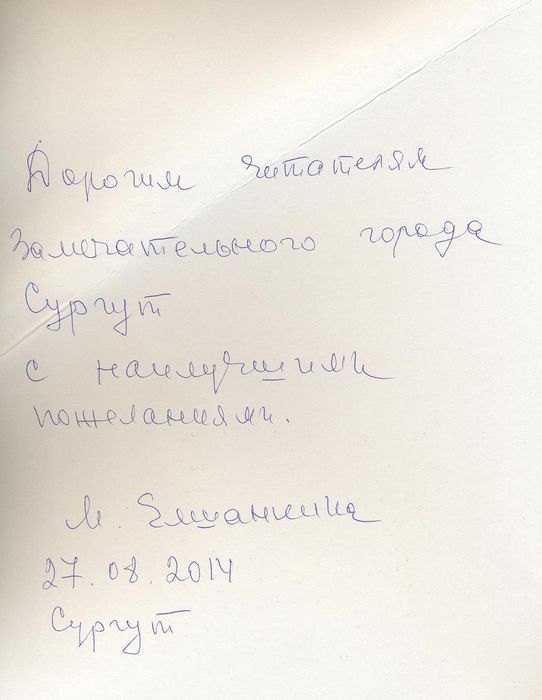 Дорогим читателям
замечательного города
Сургут
с наилучшими
пожеланиями.
М.
27.08.2014
Сургут